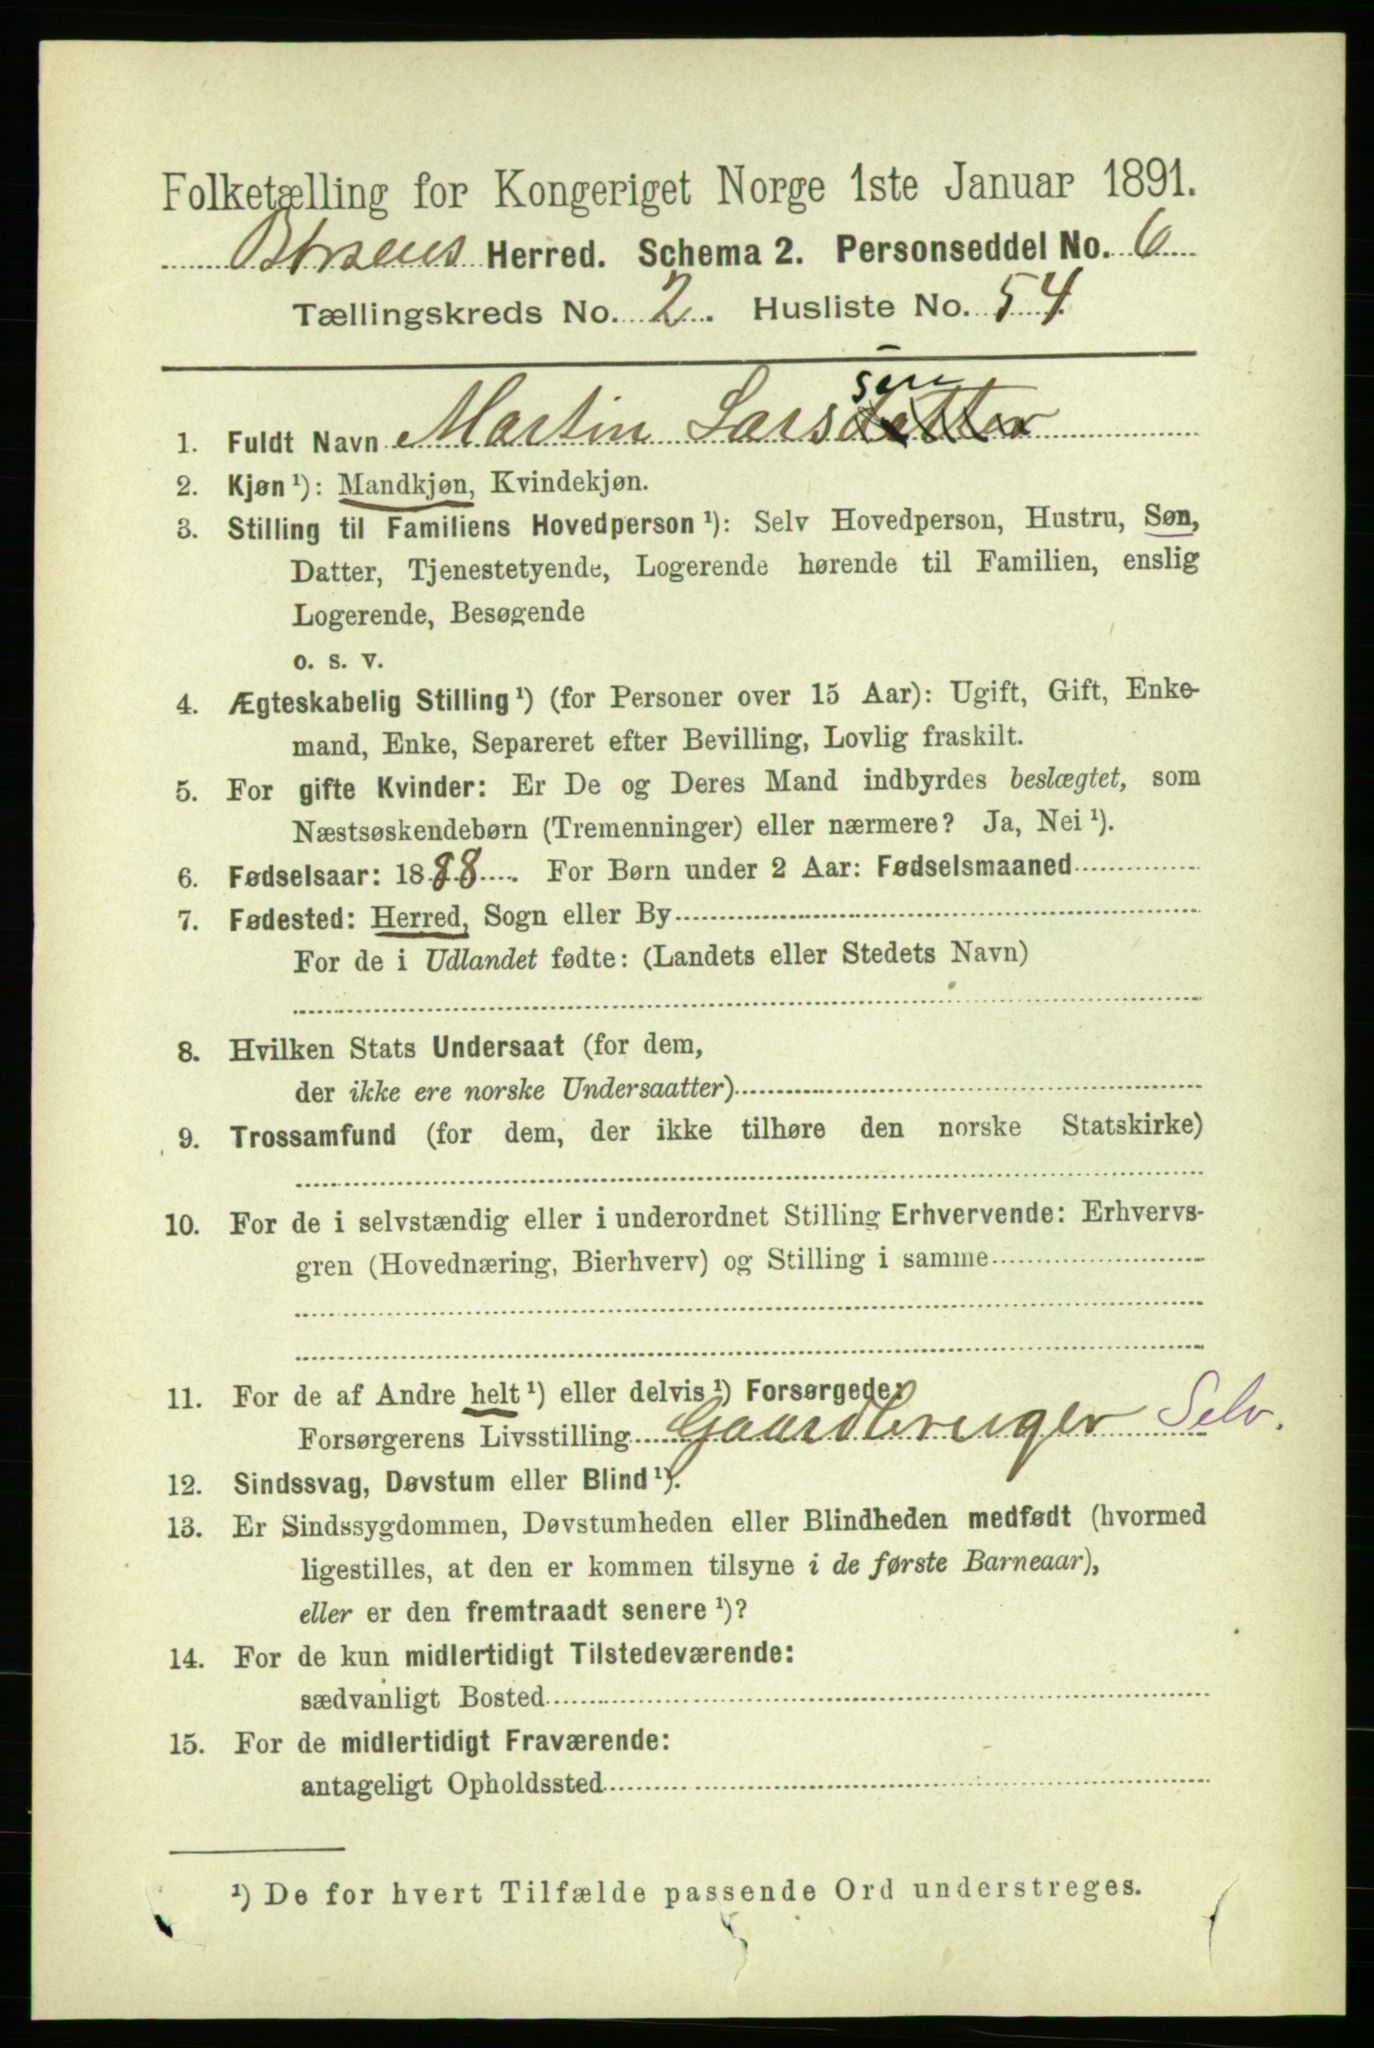 Folketælling for Kongeriget Norge 1ste Januar 1891.
Børsens Herred. Schema 2. Personseddel No. 6
Tællingskreds No. 2. Husliste No. 54
sen
1. Fuldt Navn Martin Larsdatter
2. Kjøn ¹): Mandkjøn, Kvindekjøn.
3. Stilling til Familiens Hovedperson ¹): Selv Hovedperson, Hustru, Søn,
Datter, Tjenestetyende, Logerende hørende til Familien, enslig
Logerende, Besøgende
o. s. v.
4. Ægteskabelig Stilling ¹) (for Personer over 15 Aar): Ugift, Gift, Enke-
mand, Enke, Separeret efter Bevilling, Lovlig fraskilt.
5. For gifte Kvinder: Er De og Deres Mand indbyrdes beslægtet, som
Næstsøskendebørn (Tremenninger) eller nærmere? Ja, Nei ¹).
6. Fødselsaar: 1888. For Børn under 2 Aar: Fødselsmaaned
7. Fødested: Herred, Sogn eller By
For de i Udlandet fødte: (Landets eller Stedets Navn)
8. Hvilken Stats Undersaat (for dem,
der ikke ere norske Undersaatter)
9. Trossamfund (for dem, der ikke tilhøre den norske Statskirke)
10. For de i selvstændig eller i underordnet Stilling Erhvervende: Erhvervs-
gren (Hovednæring, Bierhverv) og Stilling i samme
11. For de af Andre helt ¹) eller delvis ¹) Forsørgede,
Forsørgerens Livsstilling Gaardbruger Selv.
12. Sindssvag, Døvstum eller Blind ¹).
13. Er Sindssygdommen, Døvstumheden eller Blindheden medfødt (hvormed
ligestilles, at den er kommen tilsyne i de første Barneaar),
eller er den fremtraadt senere ¹)?
14. For de kun midlertidigt Tilstedeværende:
sædvanligt Bosted
15. For de midlertidigt Fraværende:
antageligt Opholdssted
¹) De for hvert Tilfælde passende Ord understreges.